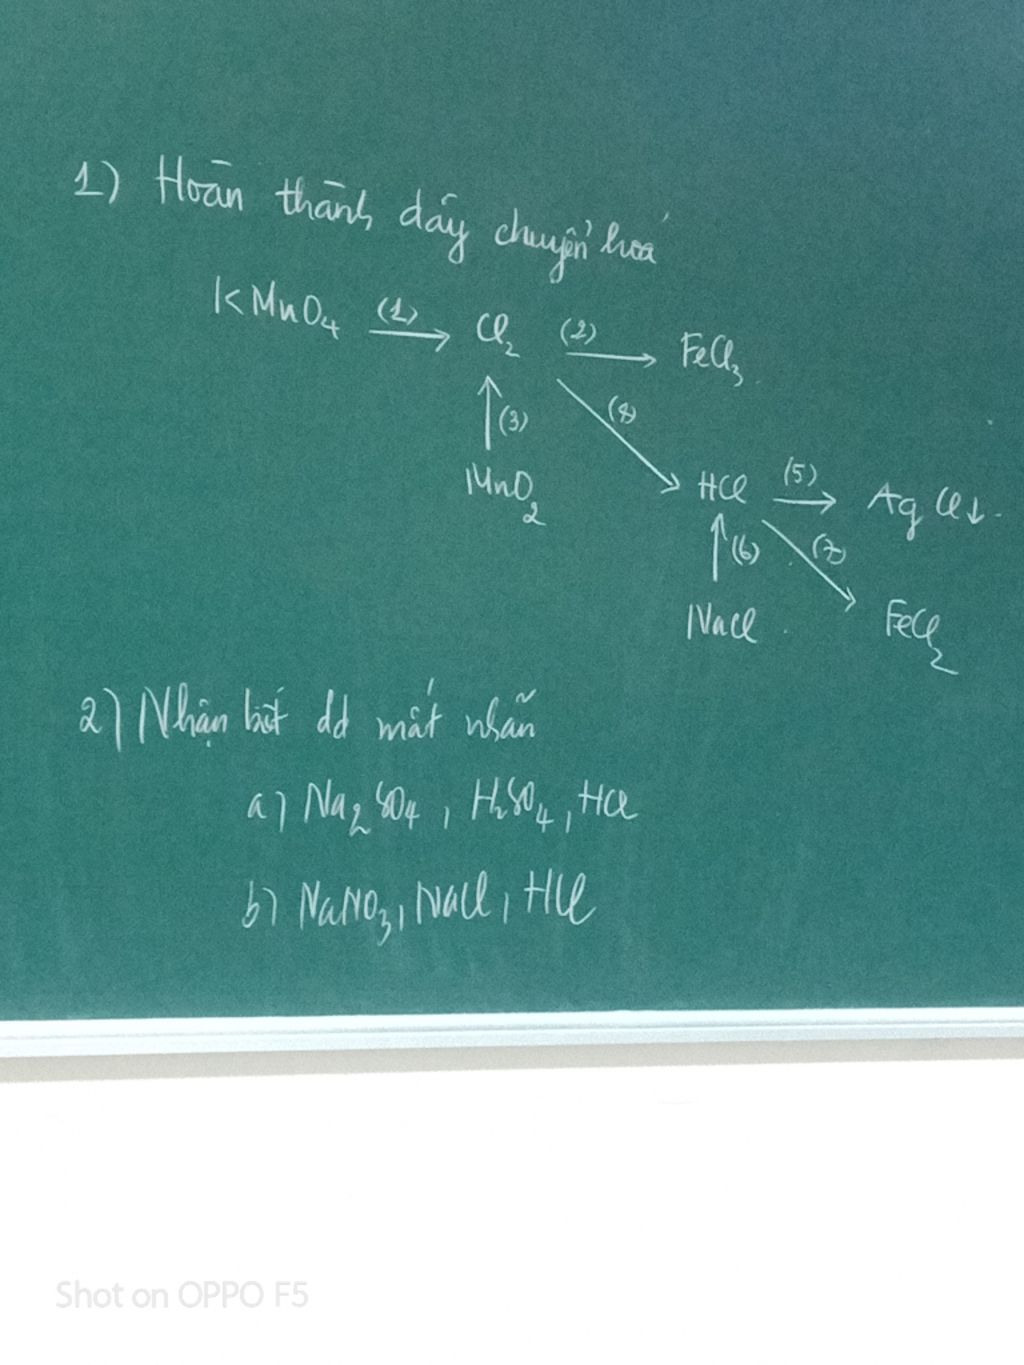 1) Hoàn thành dãy chuyển hoá
KMnO₄ (1)→ Cl₂ (2)→ FeCl₃
↑(3) (4)
MnO₂ HCl (5)→ AgCl↓.
↑(6) (7)
NaCl FeCl₂
2) Nhận biết dd mất nhãn
a) Na₂SO₄, H₂SO₄, HCl
b) NaNO₃, NaCl, HCl
Shot on OPPO F5